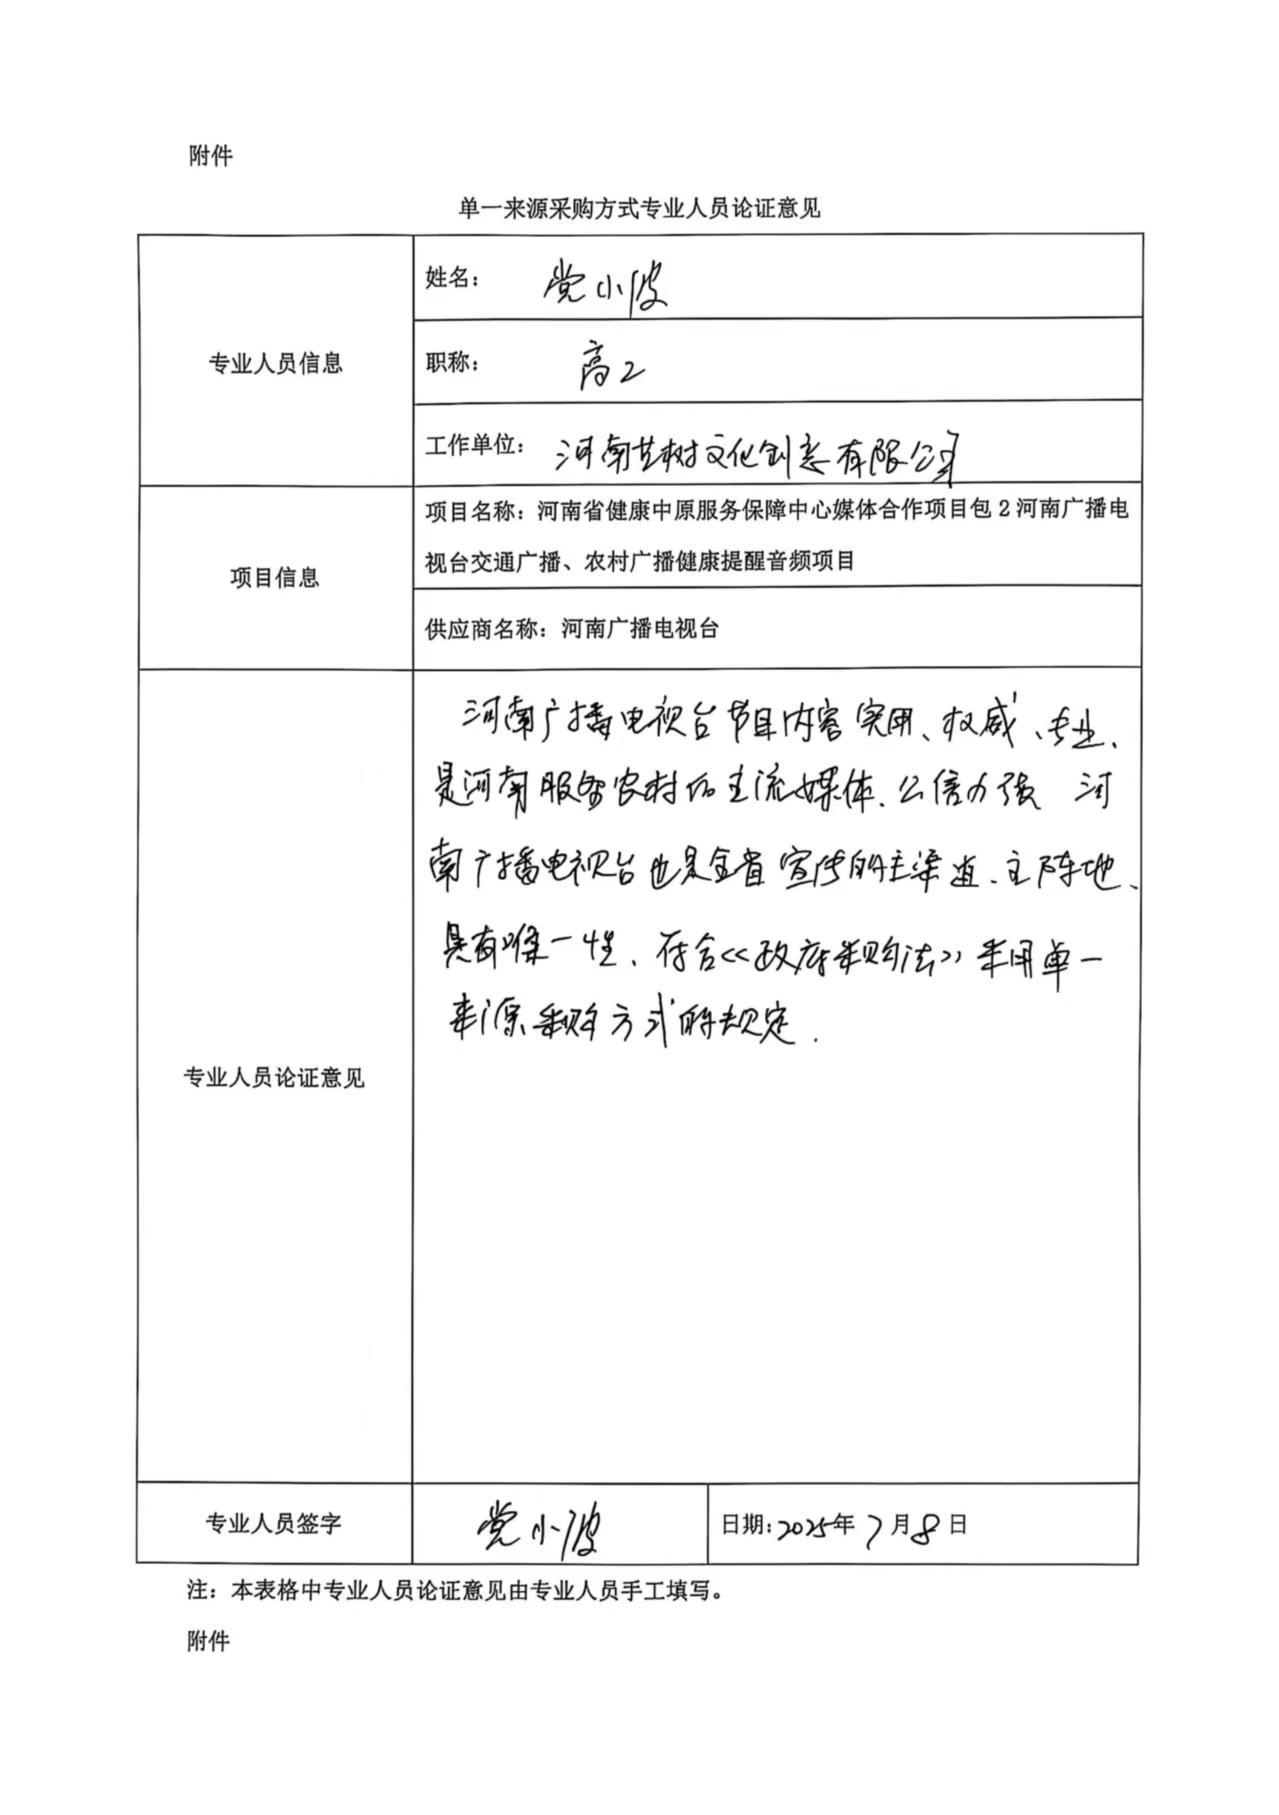 附件
单一来源采购方式专业人员论证意见
专业人员信息
姓名： 党小波
职称： 高工
工作单位： 河南艺树文化创意有限公司
项目信息
项目名称：河南省健康中原服务保障中心媒体合作项目包2河南广播电
视台交通广播、农村广播健康提醒音频项目
供应商名称：河南广播电视台
专业人员论证意见
河南广播电视台节目内容实用、权威、专业、
是河南服务农村的主流媒体、公信力强 河
南广播电视台也是全省宣传的主渠道、主阵地、
具有唯一性、符合《政府采购法》采用单一
来源采购方式的规定.
专业人员签字
党小波
日期：2025年7月8日
注：本表格中专业人员论证意见由专业人员手工填写。
附件